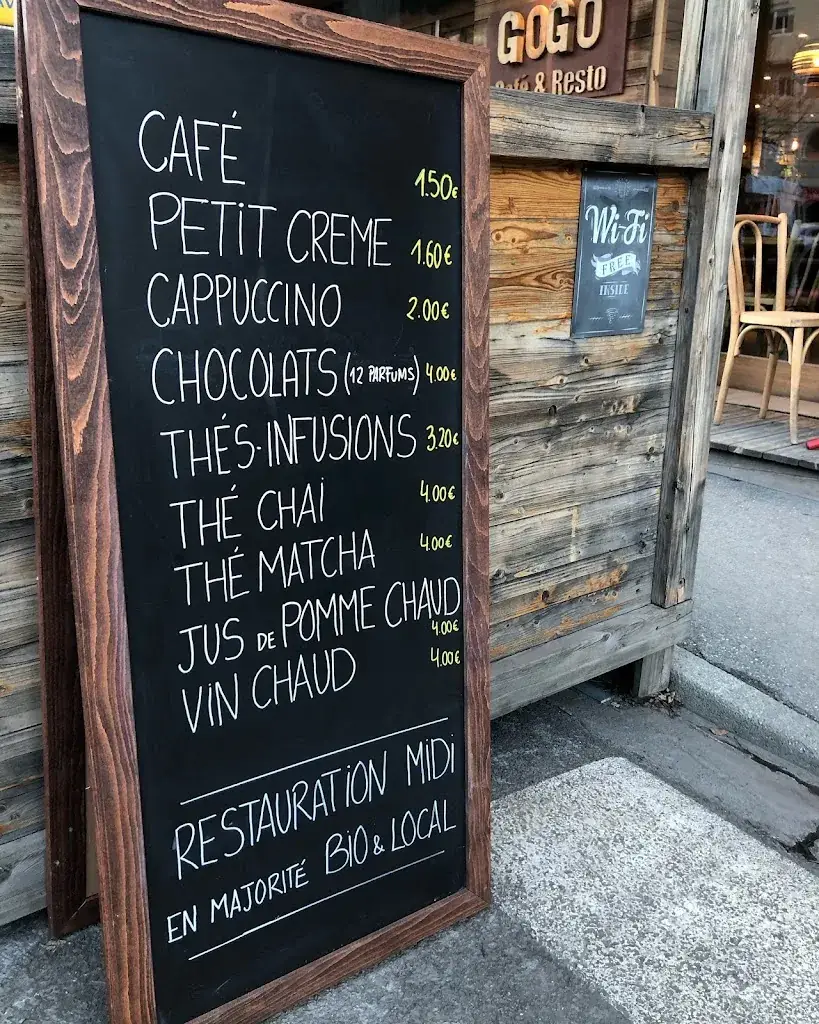 GOGO
Café & Resto
CAFÉ 1.50€
PETIT CREME 1.60€
CAPPUCCINO 2.00€
CHOCOLATS (12 PARFUMS) 4.00€
THÉS-INFUSIONS 3.20€
THÉ CHAI 4.00€
THÉ MATCHA 4.00€
JUS DE POMME CHAUD 4.00€
VIN CHAUD 4.00€
RESTAURATION MIDI
EN MAJORITÉ BIO & LOCAL
Wi-Fi
FREE
INSIDE